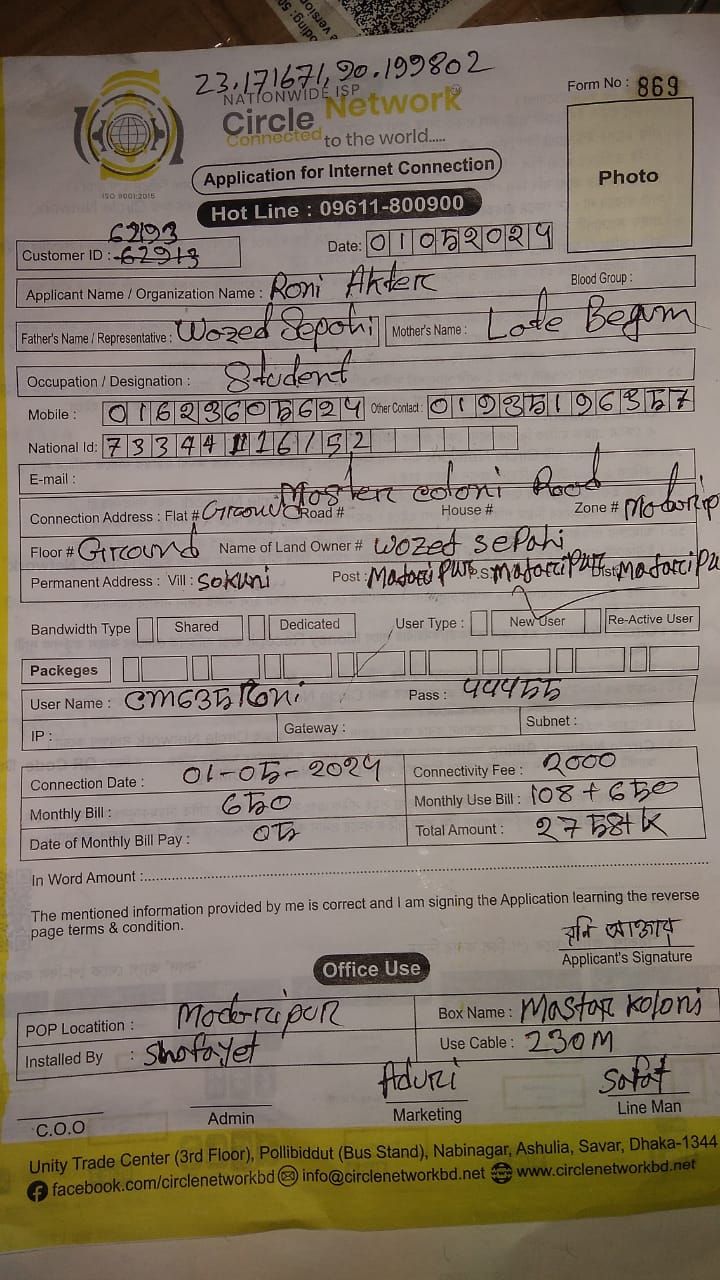 23.171671, 90.199802
NATIONWIDE ISP
Circle Network
Connected to the world.....
ISO 9001:2015
Form No : 869
Photo
Application for Internet Connection
Hot Line : 09611-800900
62193
Customer ID : 62913
Date: 01052024
Applicant Name / Organization Name : Roni Akter
Blood Group :
Father's Name / Representative : Wozed Sepohi
Mother's Name : Lode Begum
Occupation / Designation : Student
Mobile : 01623605624 Other Contact : 01935196357
National Id: 7334411 16152
E-mail :
Master coloni Road
Connection Address : Flat # Ground Road # House # Zone # Madarip
Floor # Ground Name of Land Owner # Wozed Sepahi
Permanent Address : Vill : Sokuni Post : Madaripur P.S: Madaripur Dist: Madaripu
Bandwidth Type Shared Dedicated User Type : New User Re-Active User
Packeges
User Name : CM635Roni Pass : 44455
IP : Gateway : Subnet :
Connection Date : 01-05-2024 Connectivity Fee : 2000
Monthly Bill : 650 Monthly Use Bill : 108 + 650
Date of Monthly Bill Pay : 05 Total Amount : 2758tk
In Word Amount :
The mentioned information provided by me is correct and I am signing the Application learning the reverse
page terms & condition.
রনি আক্তার
Applicant's Signature
Office Use
POP Locatition : Modaripur Box Name : Mastar Koloni
Installed By : Shofayet Use Cable : 230M
Aduri
Sofot
C.O.O Admin Marketing Line Man
Unity Trade Center (3rd Floor), Pollibiddut (Bus Stand), Nabinagar, Ashulia, Savar, Dhaka-1344
facebook.com/circlenetworkbd info@circlenetworkbd.net www.circlenetworkbd.net